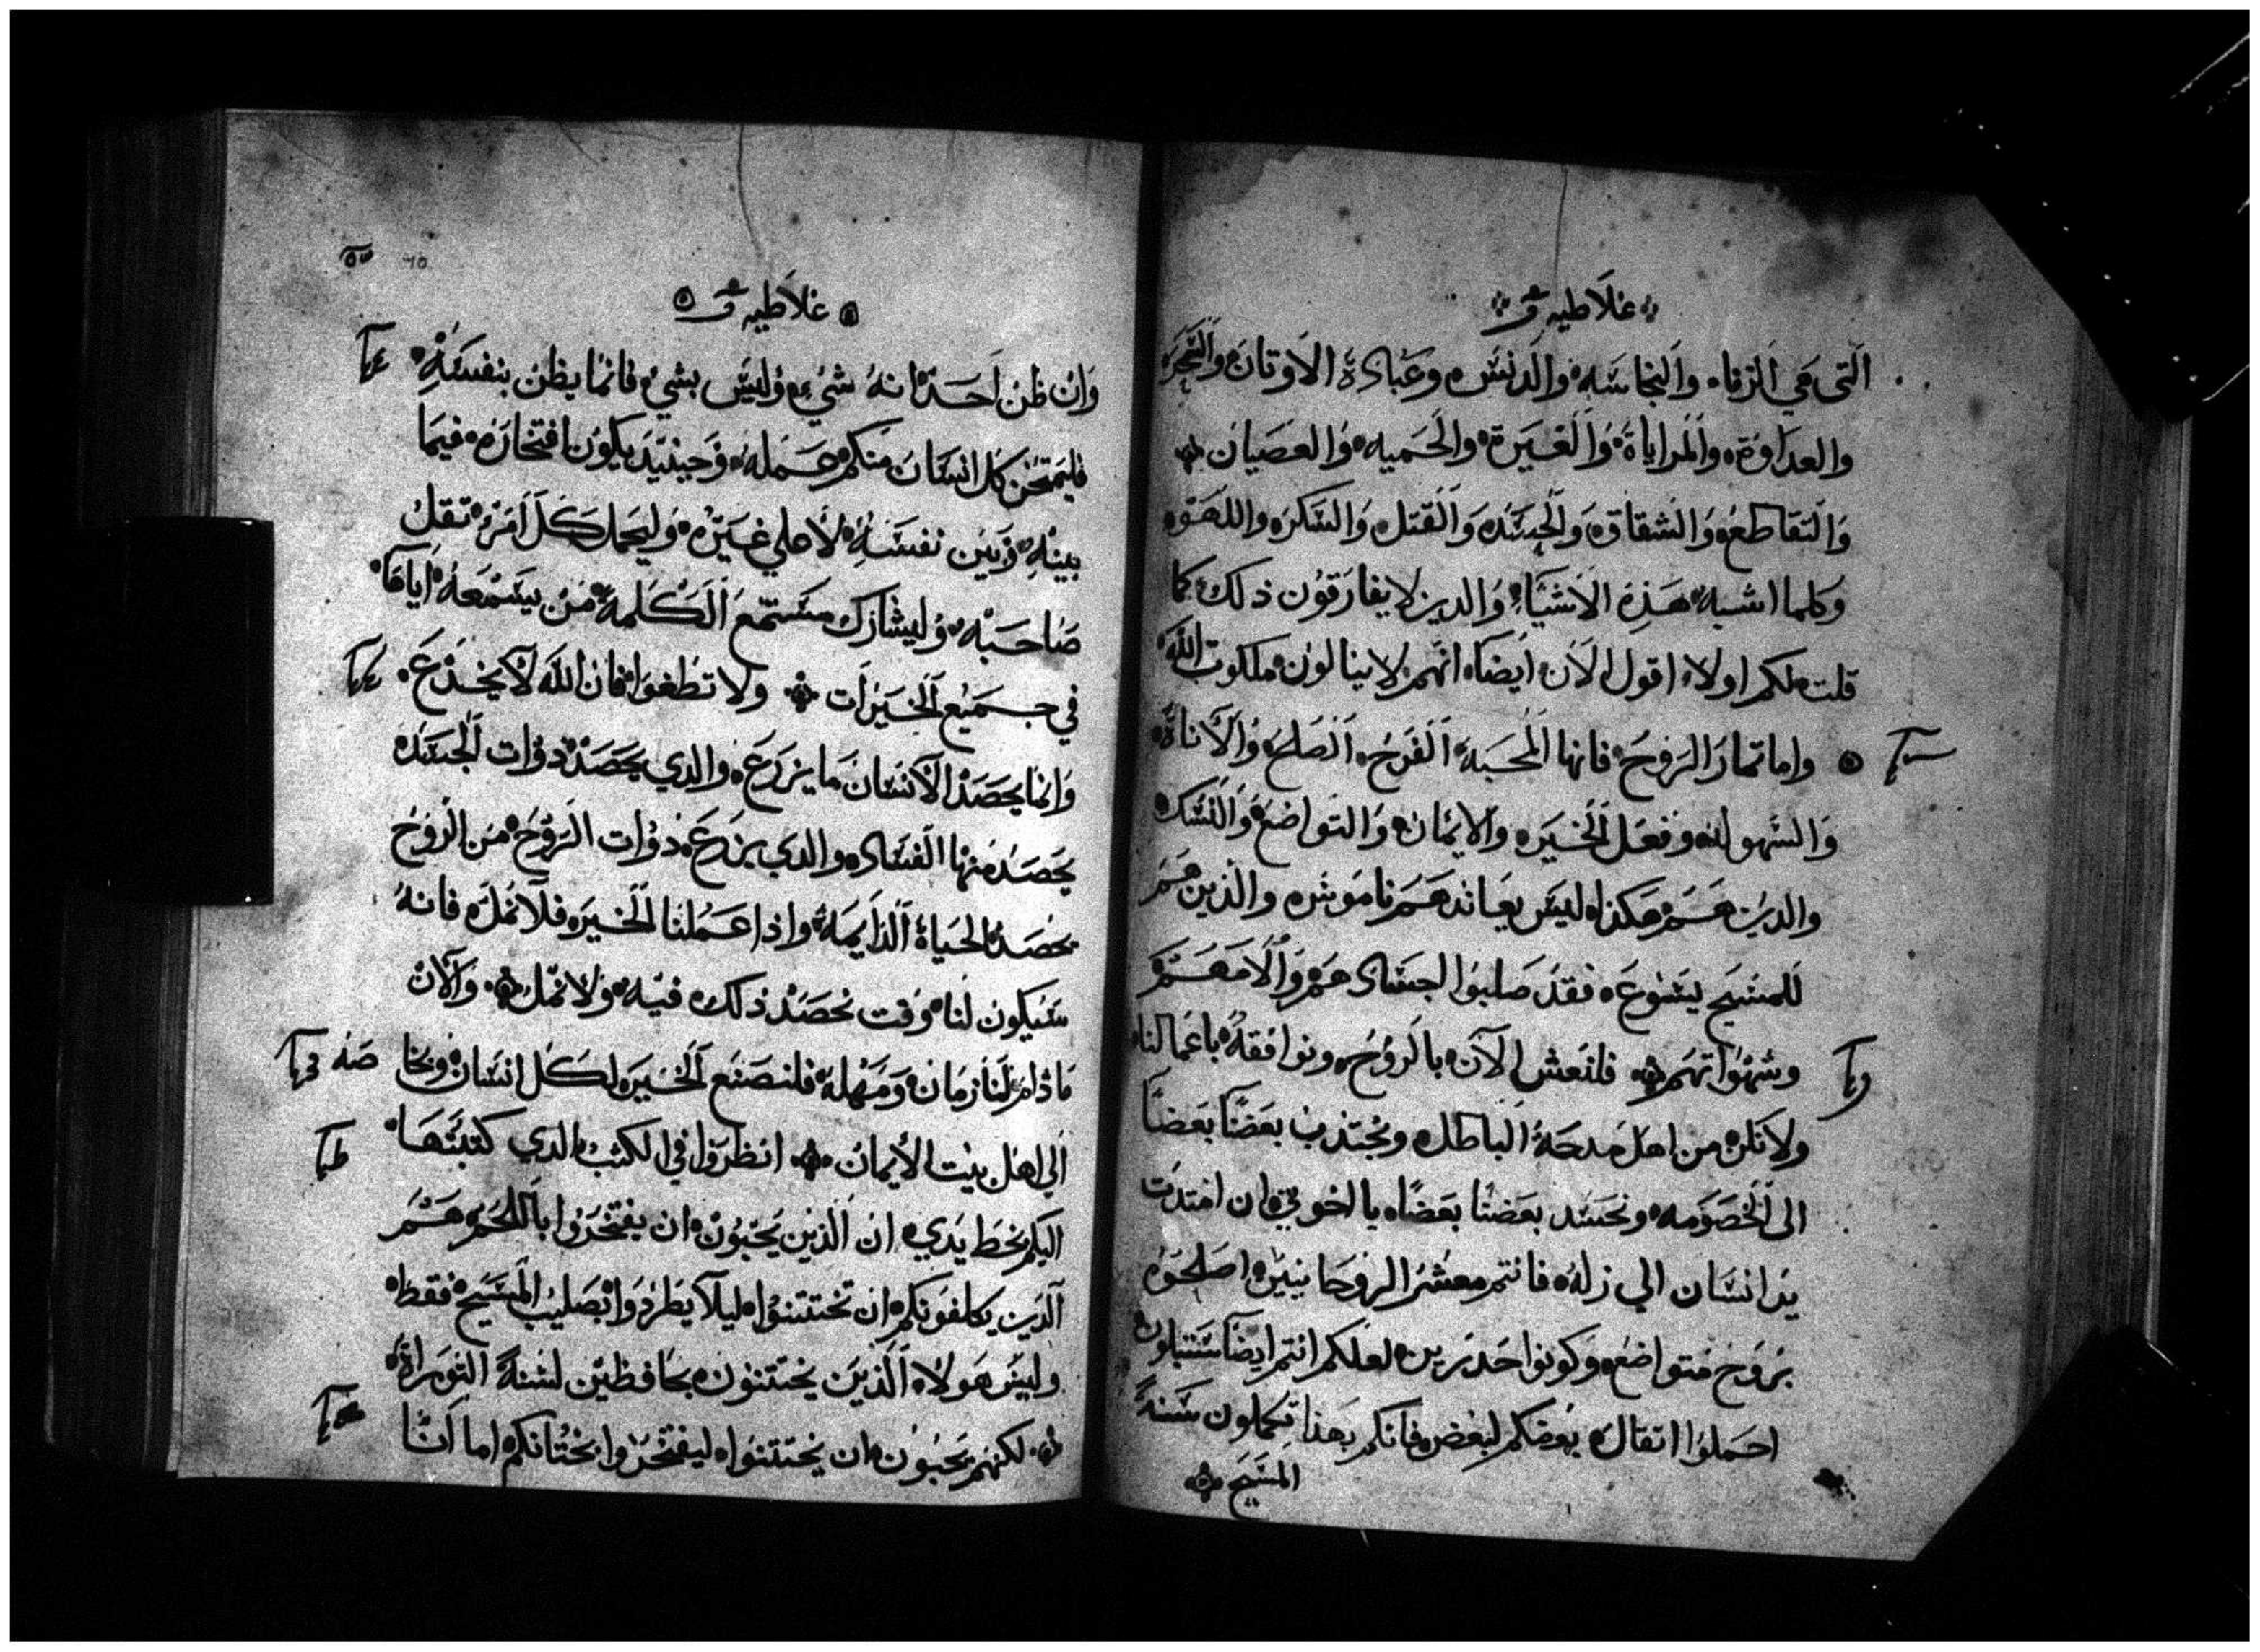 غلاطيه
التى هي الزنا والنجاسه والدنس وعبادة الاوتان والسحر
والعداوة والمراياة والغيرة والحميه والعصيان
والتقاطع والشقاق والحسد والقتل والسكر واللهو
وكلما اشبه هذه الاشياء والدين لا يفارقون ذلك كما
قلت لكم اولا اقول الان ايضا انهم لا ينالون ملكوت الله
واما تمار الروح فانها المحبة الفرح الصلح والاناة
والسهوله وفعل الخير والايمان والتواضع والنسك
والدين هم هكذا ليس يعاند هم ناموس والذين هم
للمسيح يسوع فقد صلبوا اجسادهم والامهم
وشهواتهم فلنعش الان بالروح ونوافقه باعمالنا
ولا نكن من اهل مدحة الباطل ونجتذب بعضنا بعضا
الى الخصومه ونحسد بعضنا بعضا يا اخوتي ان امتدت
يد انسان الي زله فانتم معشر الروحانيين اصلحوه
بروح متواضع وكونوا حدرين لعلكم انتم ايضا ستبتلون
احملوا اتقال بعضكم لبعض فانكم بهذا تكملون سنة
المسيح
غلاطيه
وان ظن احد انه شيء وليس بشيء فانما يظن بنفسه
فليمتحن كل انسان منكم عمله وحينيد يكون افتخاره فيما
بينه وبين نفسه لا علي غيره وليحمل كل امرء تقل
صاحبه وليشارك مستمع الكلمة من يسمعه اياها
في جميع الخيرات ولا تطغوا فان الله لا يخدع
وانما يحصد الانسان ما يزرع والدي يحصد دوات الجسد
يحصد منها الفساد والدي يزرع ذوات الروح من الروح
يحصد الحياة الدايمة واذا عملنا الخير فلا نمل فانه
سيكون لنا وقت نحصد ذلك فيه ولا نمل والان
ما دام لنا زمان ومهله فلنصنع الخير لكل انسان وخاصه
الي اهل بيت الايمان انظروا في الكتب الدي كتبتها
اليكم بخط يدي ان الذين يحبون ان يفتخروا باللحم هم
الذين يكلفونكم ان تختتنوا ليلا يطردوا بصليب المسيح فقط
وليس هولاء الذين يختتنون بحافظين لسنة التوراة
لكنهم يحبون ان يختتنوا ليفتخروا بختانكم اما انا